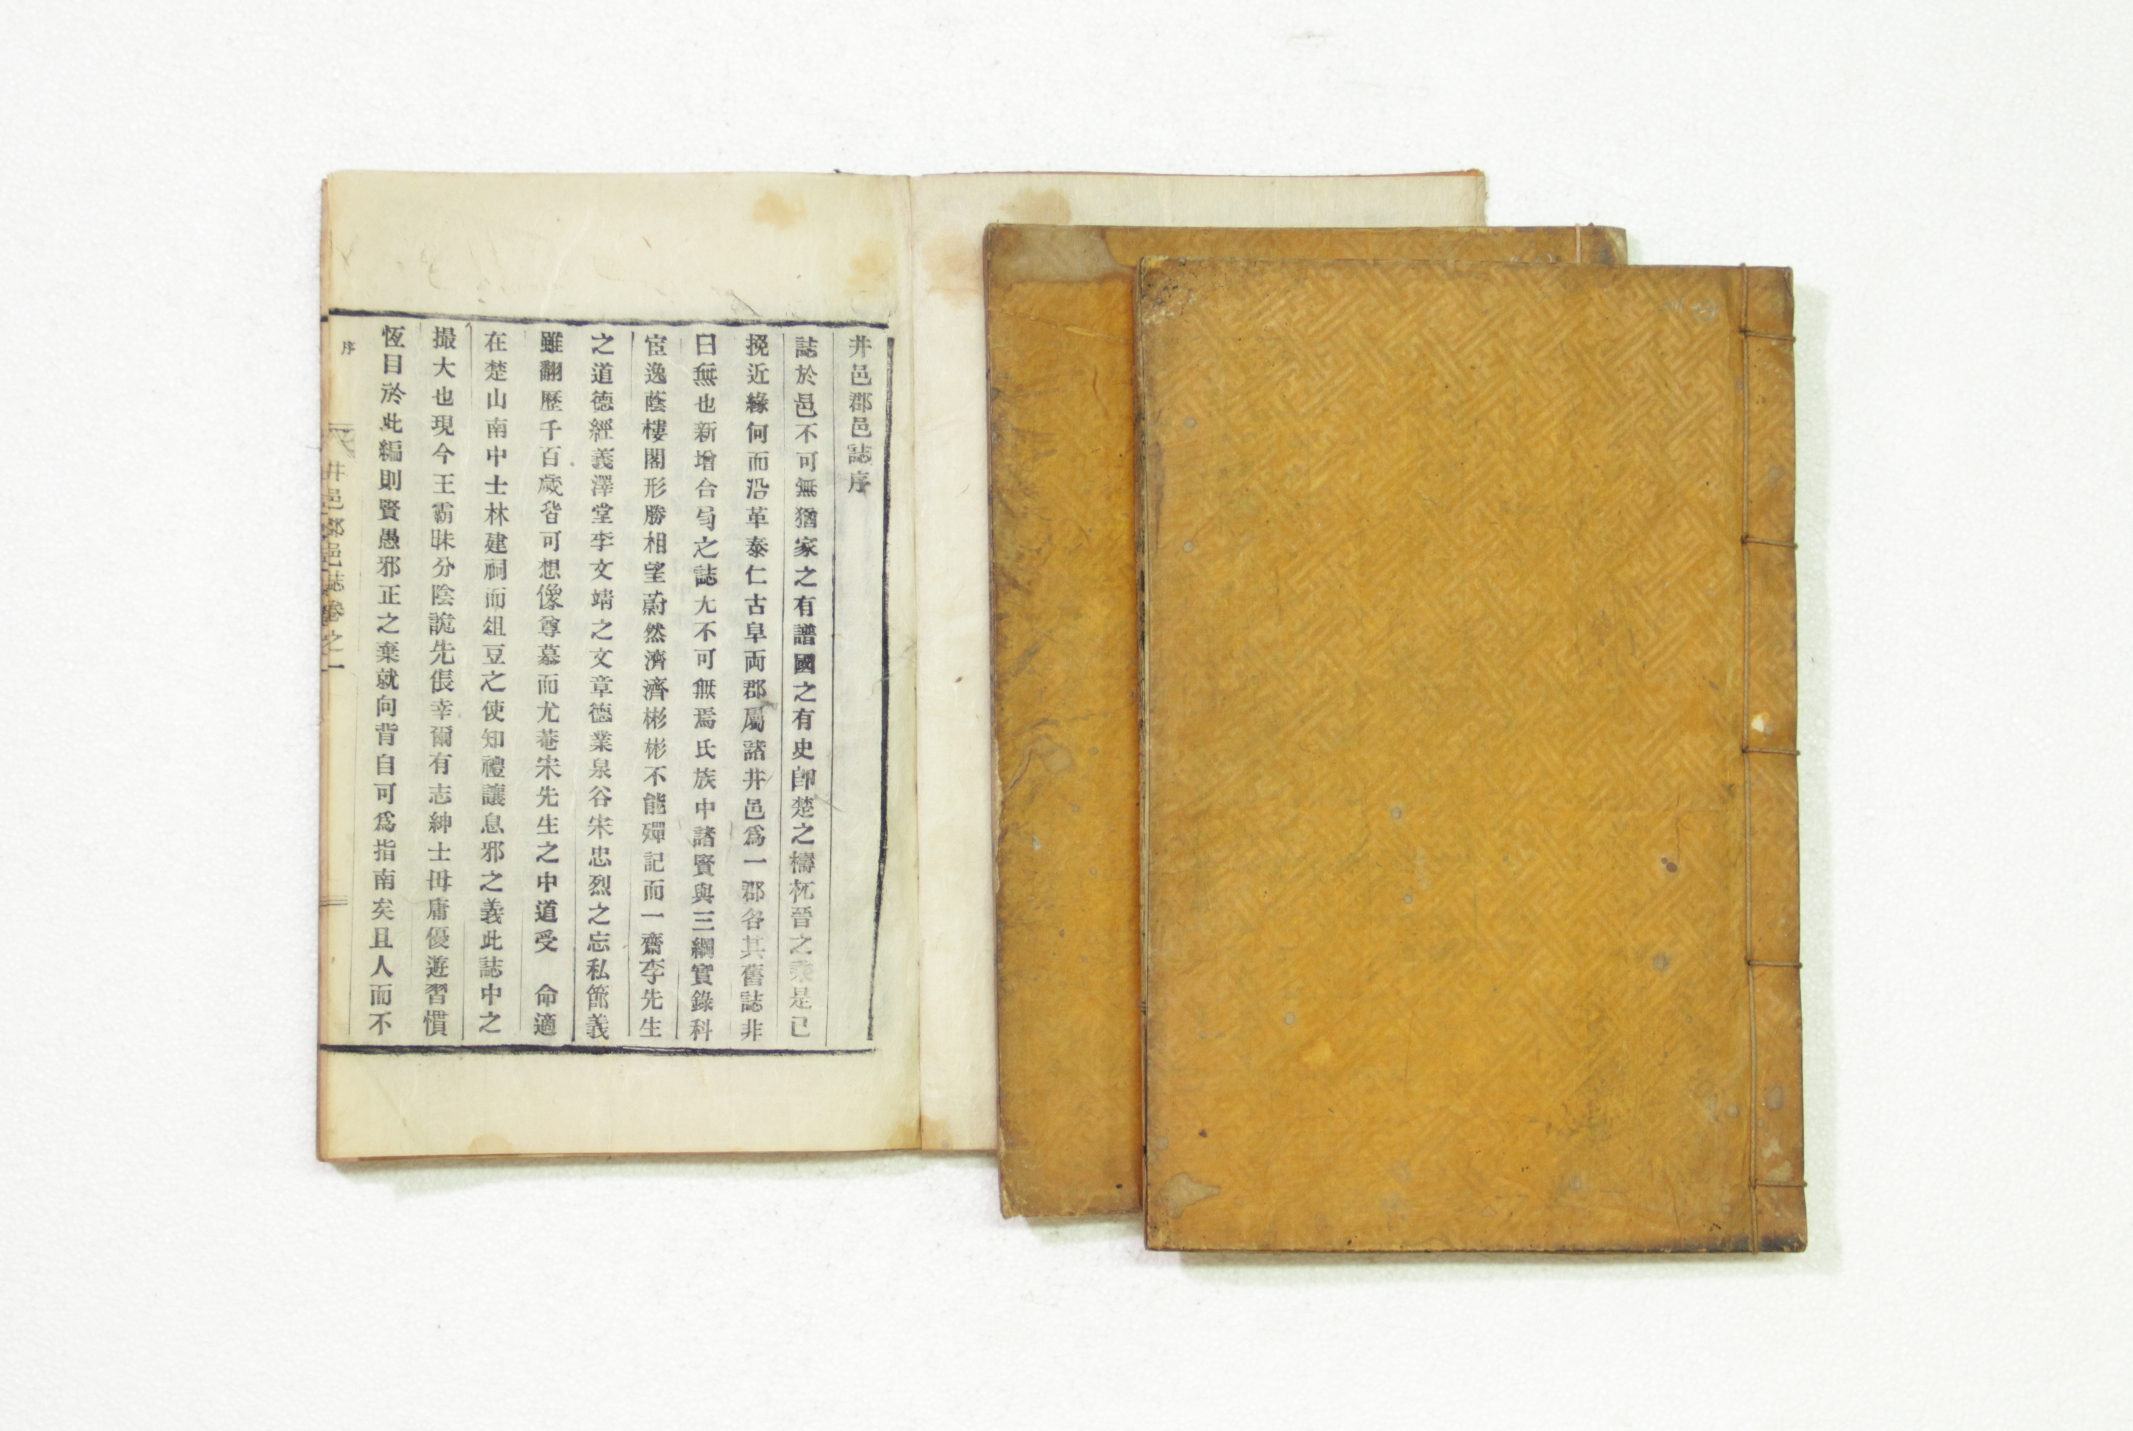 井邑郡邑誌序
誌於邑不可無猶家之有譜國之有史卽楚之檮杌晉之乘是已
挽近緣何而沿革泰仁古阜両郡屬諸井邑爲一郡各其舊誌非
曰無也新增合旬之誌尢不可無焉氏族中諸賢與三綱實錄科
宦逸蔭樓閣形勝相望蔚然濟濟彬彬不能殫記而一齋李先生
之道德經義澤堂李文靖之文章德業泉谷宋忠烈之忘私節義
雖翻歷千百歲皆可想像尊慕而尤菴宋先生之中道受 命適
在楚山南中士林建祠而俎豆之使知禮讓息邪之義此誌中之
撮大也現今王霸昧分陰詭先張幸爾有志紳士毋庸優遊習慣
恆目於此編則賢愚邪正之棄就向背自可爲指南矣且人而不
序
井邑郡邑誌卷之一